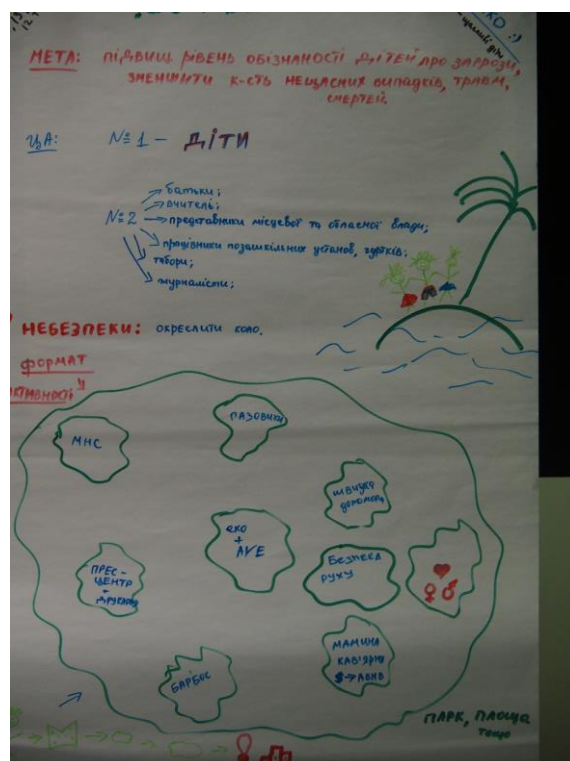 КО :)
щасливі діти
МЕТА: ПІДВИЩ. РІВЕНЬ ОБІЗНАНОСТІ ДІТЕЙ ПРО ЗАГРОЗИ,
ЗМЕНШИТИ К-СТЬ НЕЩАСНИХ ВИПАДКІВ, ТРАВМ,
СМЕРТЕЙ.
ЦА: №1 – ДІТИ
батьки;
вчителі;
№2 → представники місцевої та обласної влади;
працівники позашкільних установ, гуртків;
табори;
журналісти;
НЕБЕЗПЕКИ: ОКРЕСЛИТИ КОЛО.
ФОРМАТ
АКТИВНОСТІ
МНС
ГАЗОВИКИ
ШВИДКА
ДОПОМОГА
ЕКО
+
AVE
БЕЗПЕКА
РУХУ
ПРЕС-
ЦЕНТР
+
МАМИНА
КАВ'ЯРНЯ
$ →
БАРБОС
ПАРК, ПЛОЩА
тощо